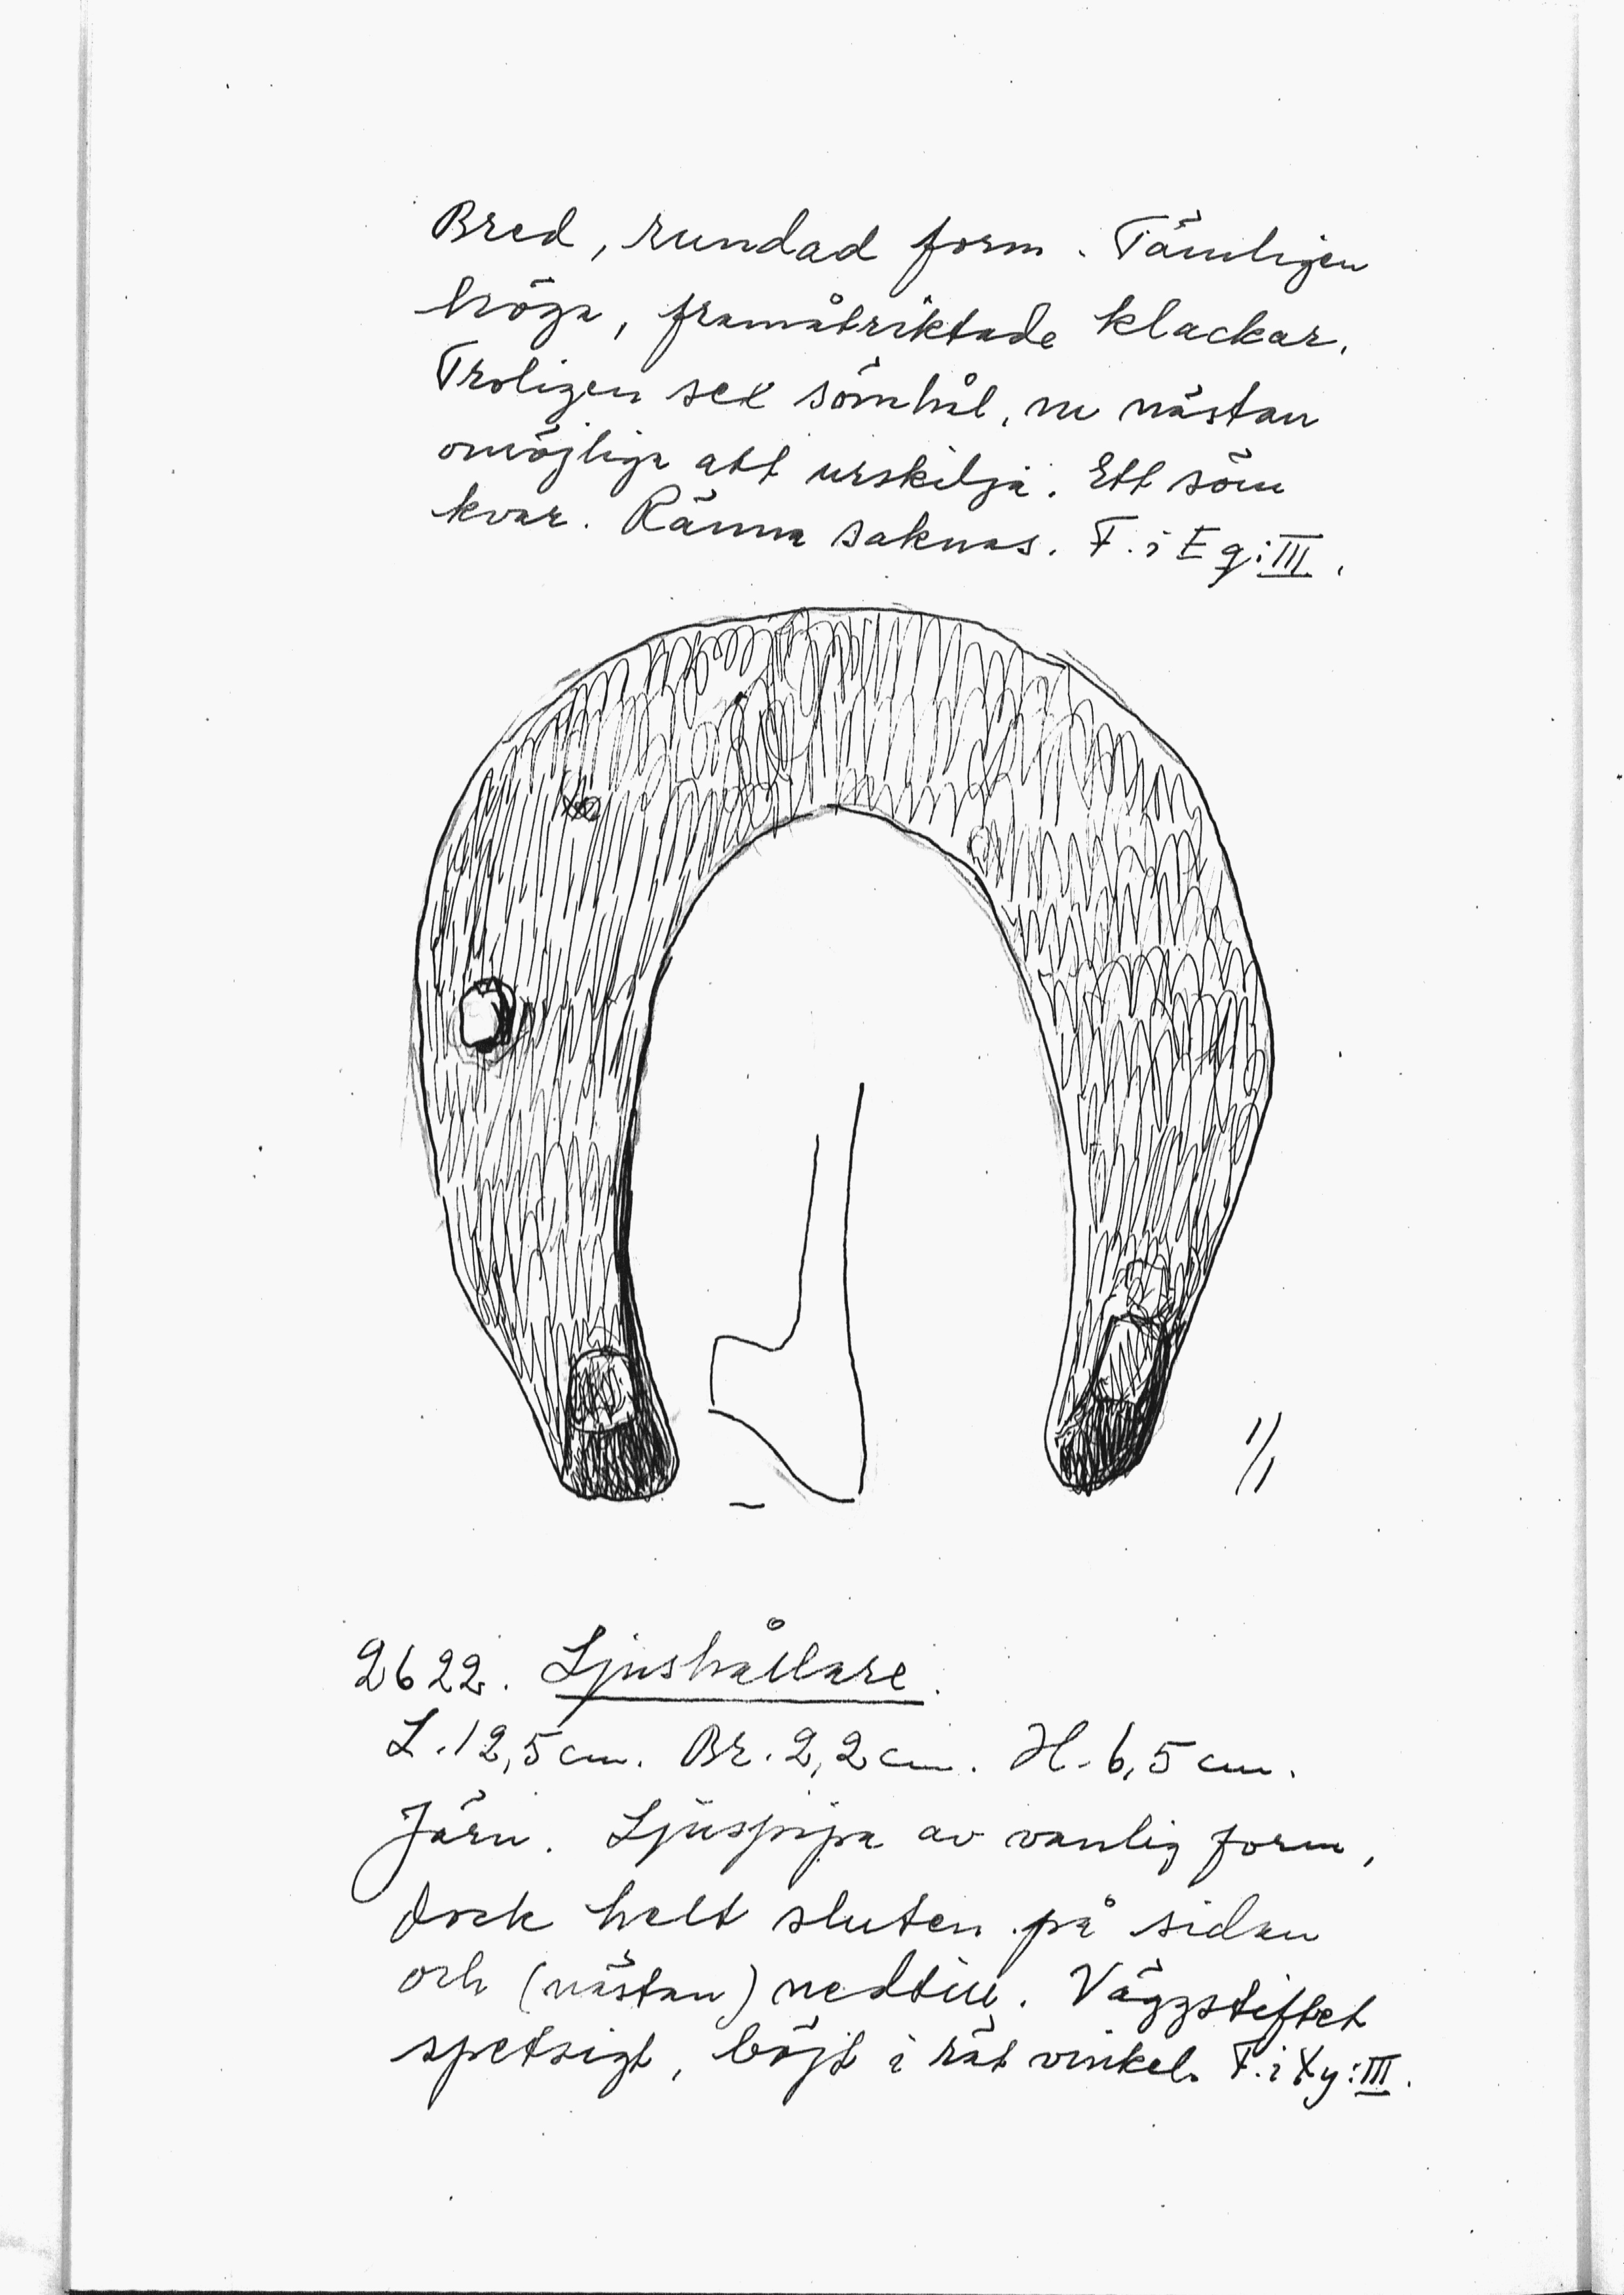 Bred, rundad form. Tämligen
höga, framåtriktade klackar.
Troligen sex sömhål, nu nästan
omöjliga att urskilja. Ett söm
kvar. Ränna saknas. F. i E q:III.
1/1
2622. Ljushållare.
L. 12,5 cm. Br. 2,2 cm. H. 6,5 cm.
Järn. Ljuspipa av vanlig form,
dock helt sluten på sidan
och (nästan) nedtill. Väggstiftet
spetsigt, böjt i rät vinkel. F. i Xy:III.